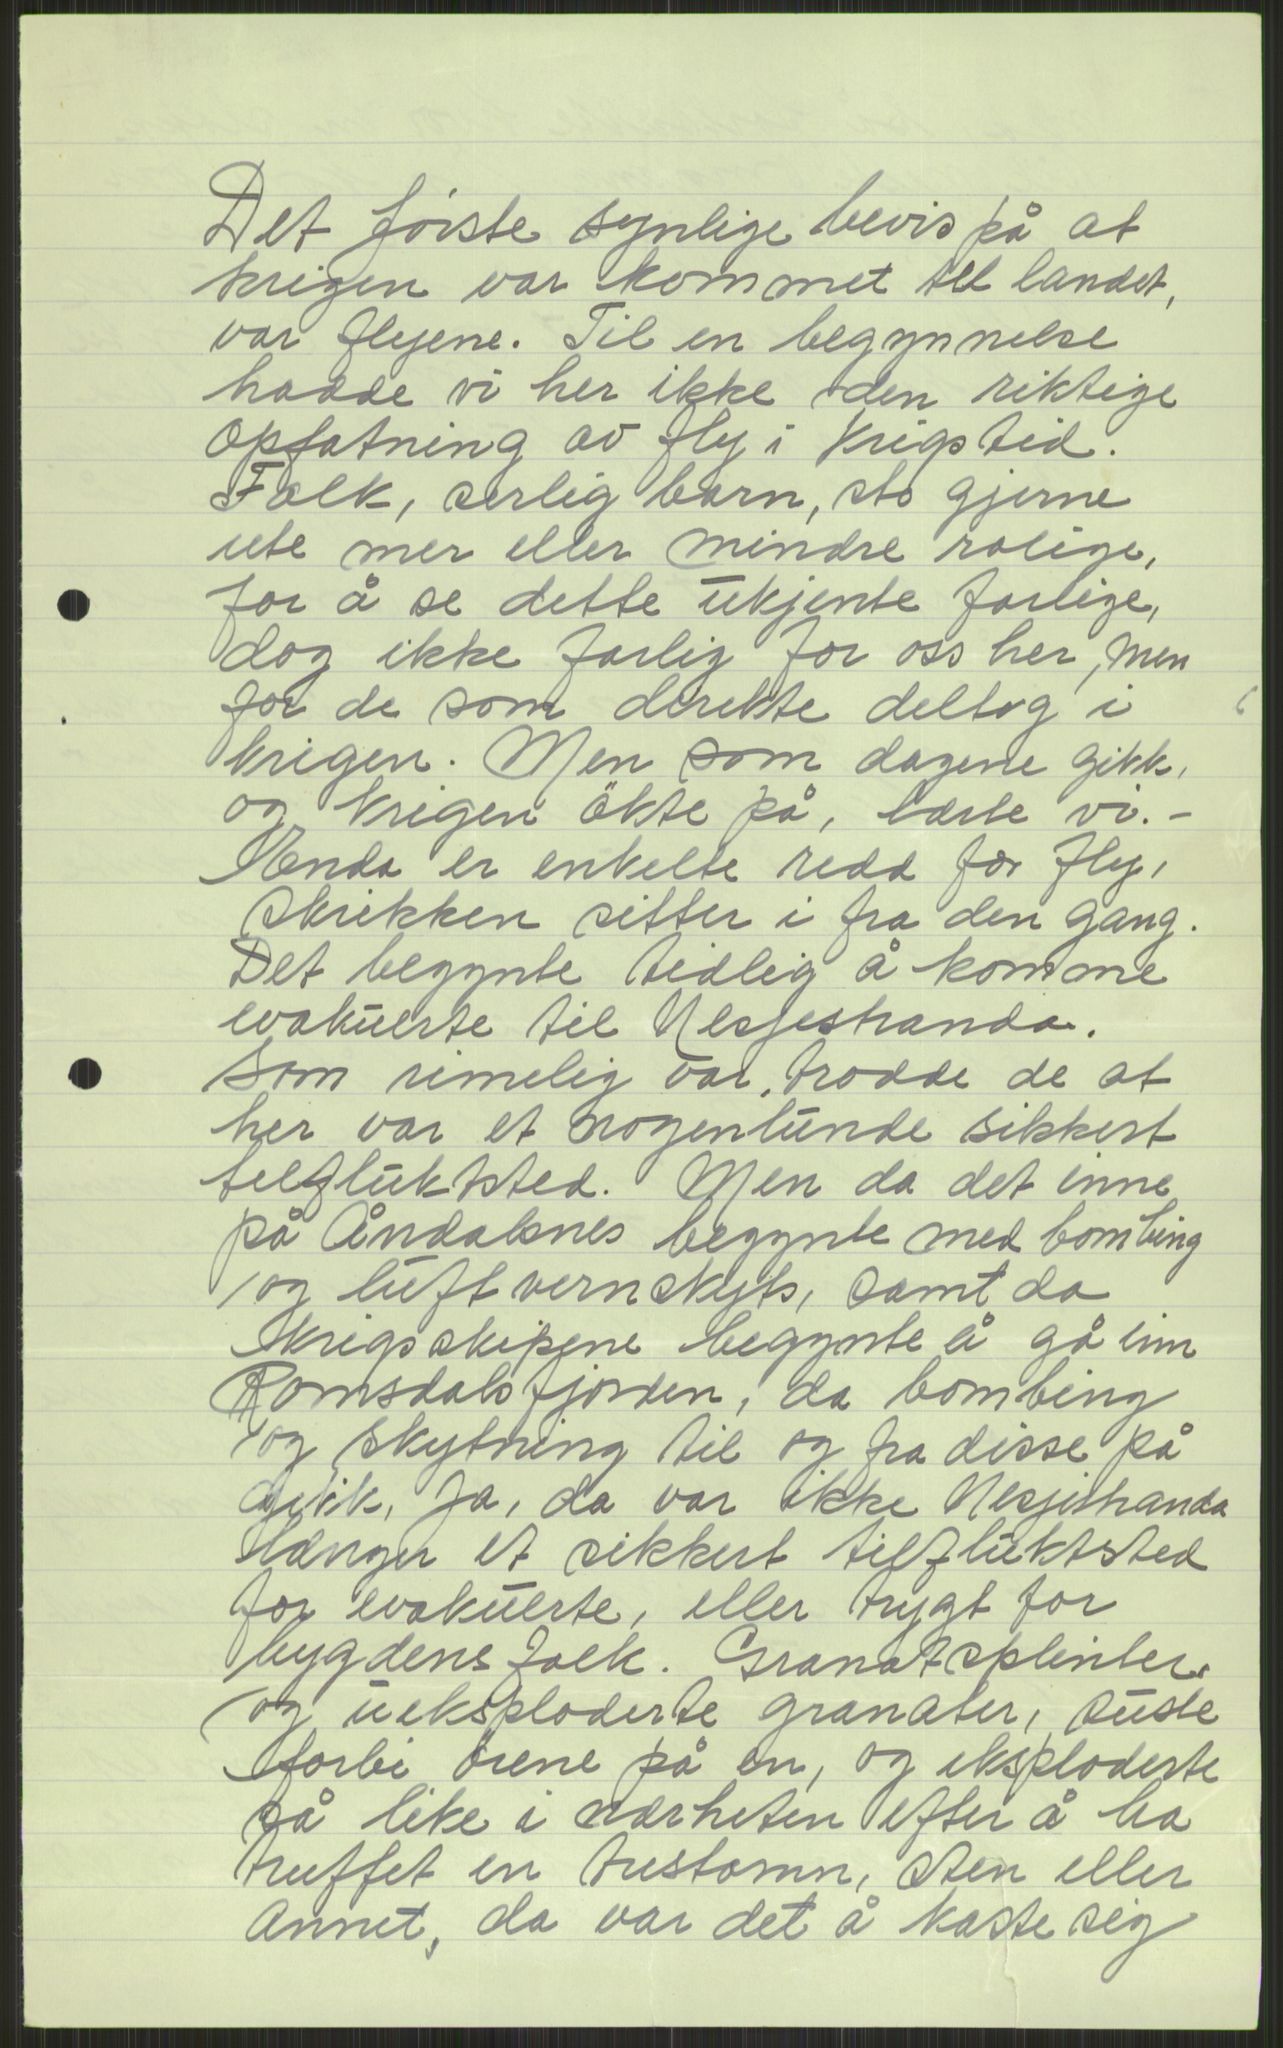 Det første synlige bevis på at
krigen var kommet til landet,
var flyene. Til en begynnelse
hadde vi her ikke den riktige
opfatning av fly i krigstid.
Folk, serlig barn, sto gjerne
ute mer eller mindre rolige,
for å se dette ukjente farlige,
dog ikke farlig for oss her, men
for de som direkte deltog i
krigen. Men som dagene gikk,
og krigen økte på, lærte vi. –
Enda er enkelte redd for fly,
skrekken sitter i fra den gang.
Det begynte tidlig å komme
evakuerte til Nesjestranda.
Som rimelig var, trodde de at
her var et nogenlunde sikkert
tilfluktsted. Men da det inne
på Åndalsnes begynte med bombing
og luftvernskyts, samt da
krigsskipene begynte å gå inn
Romsdalsfjorden, da bombing
og skytning til og fra disse på
gikk, ja, da var ikke Nesjestranda
længer et sikkert tilfluktsted
for evakuerte, eller trygt for
bygdens folk. Granatsplinter
og ueksploderte granater, suste
forbi ørene på en, og eksploderte
så like i nærheten efter å ha
truffet en trestamn, sten eller
annet, da var det å kaste sig